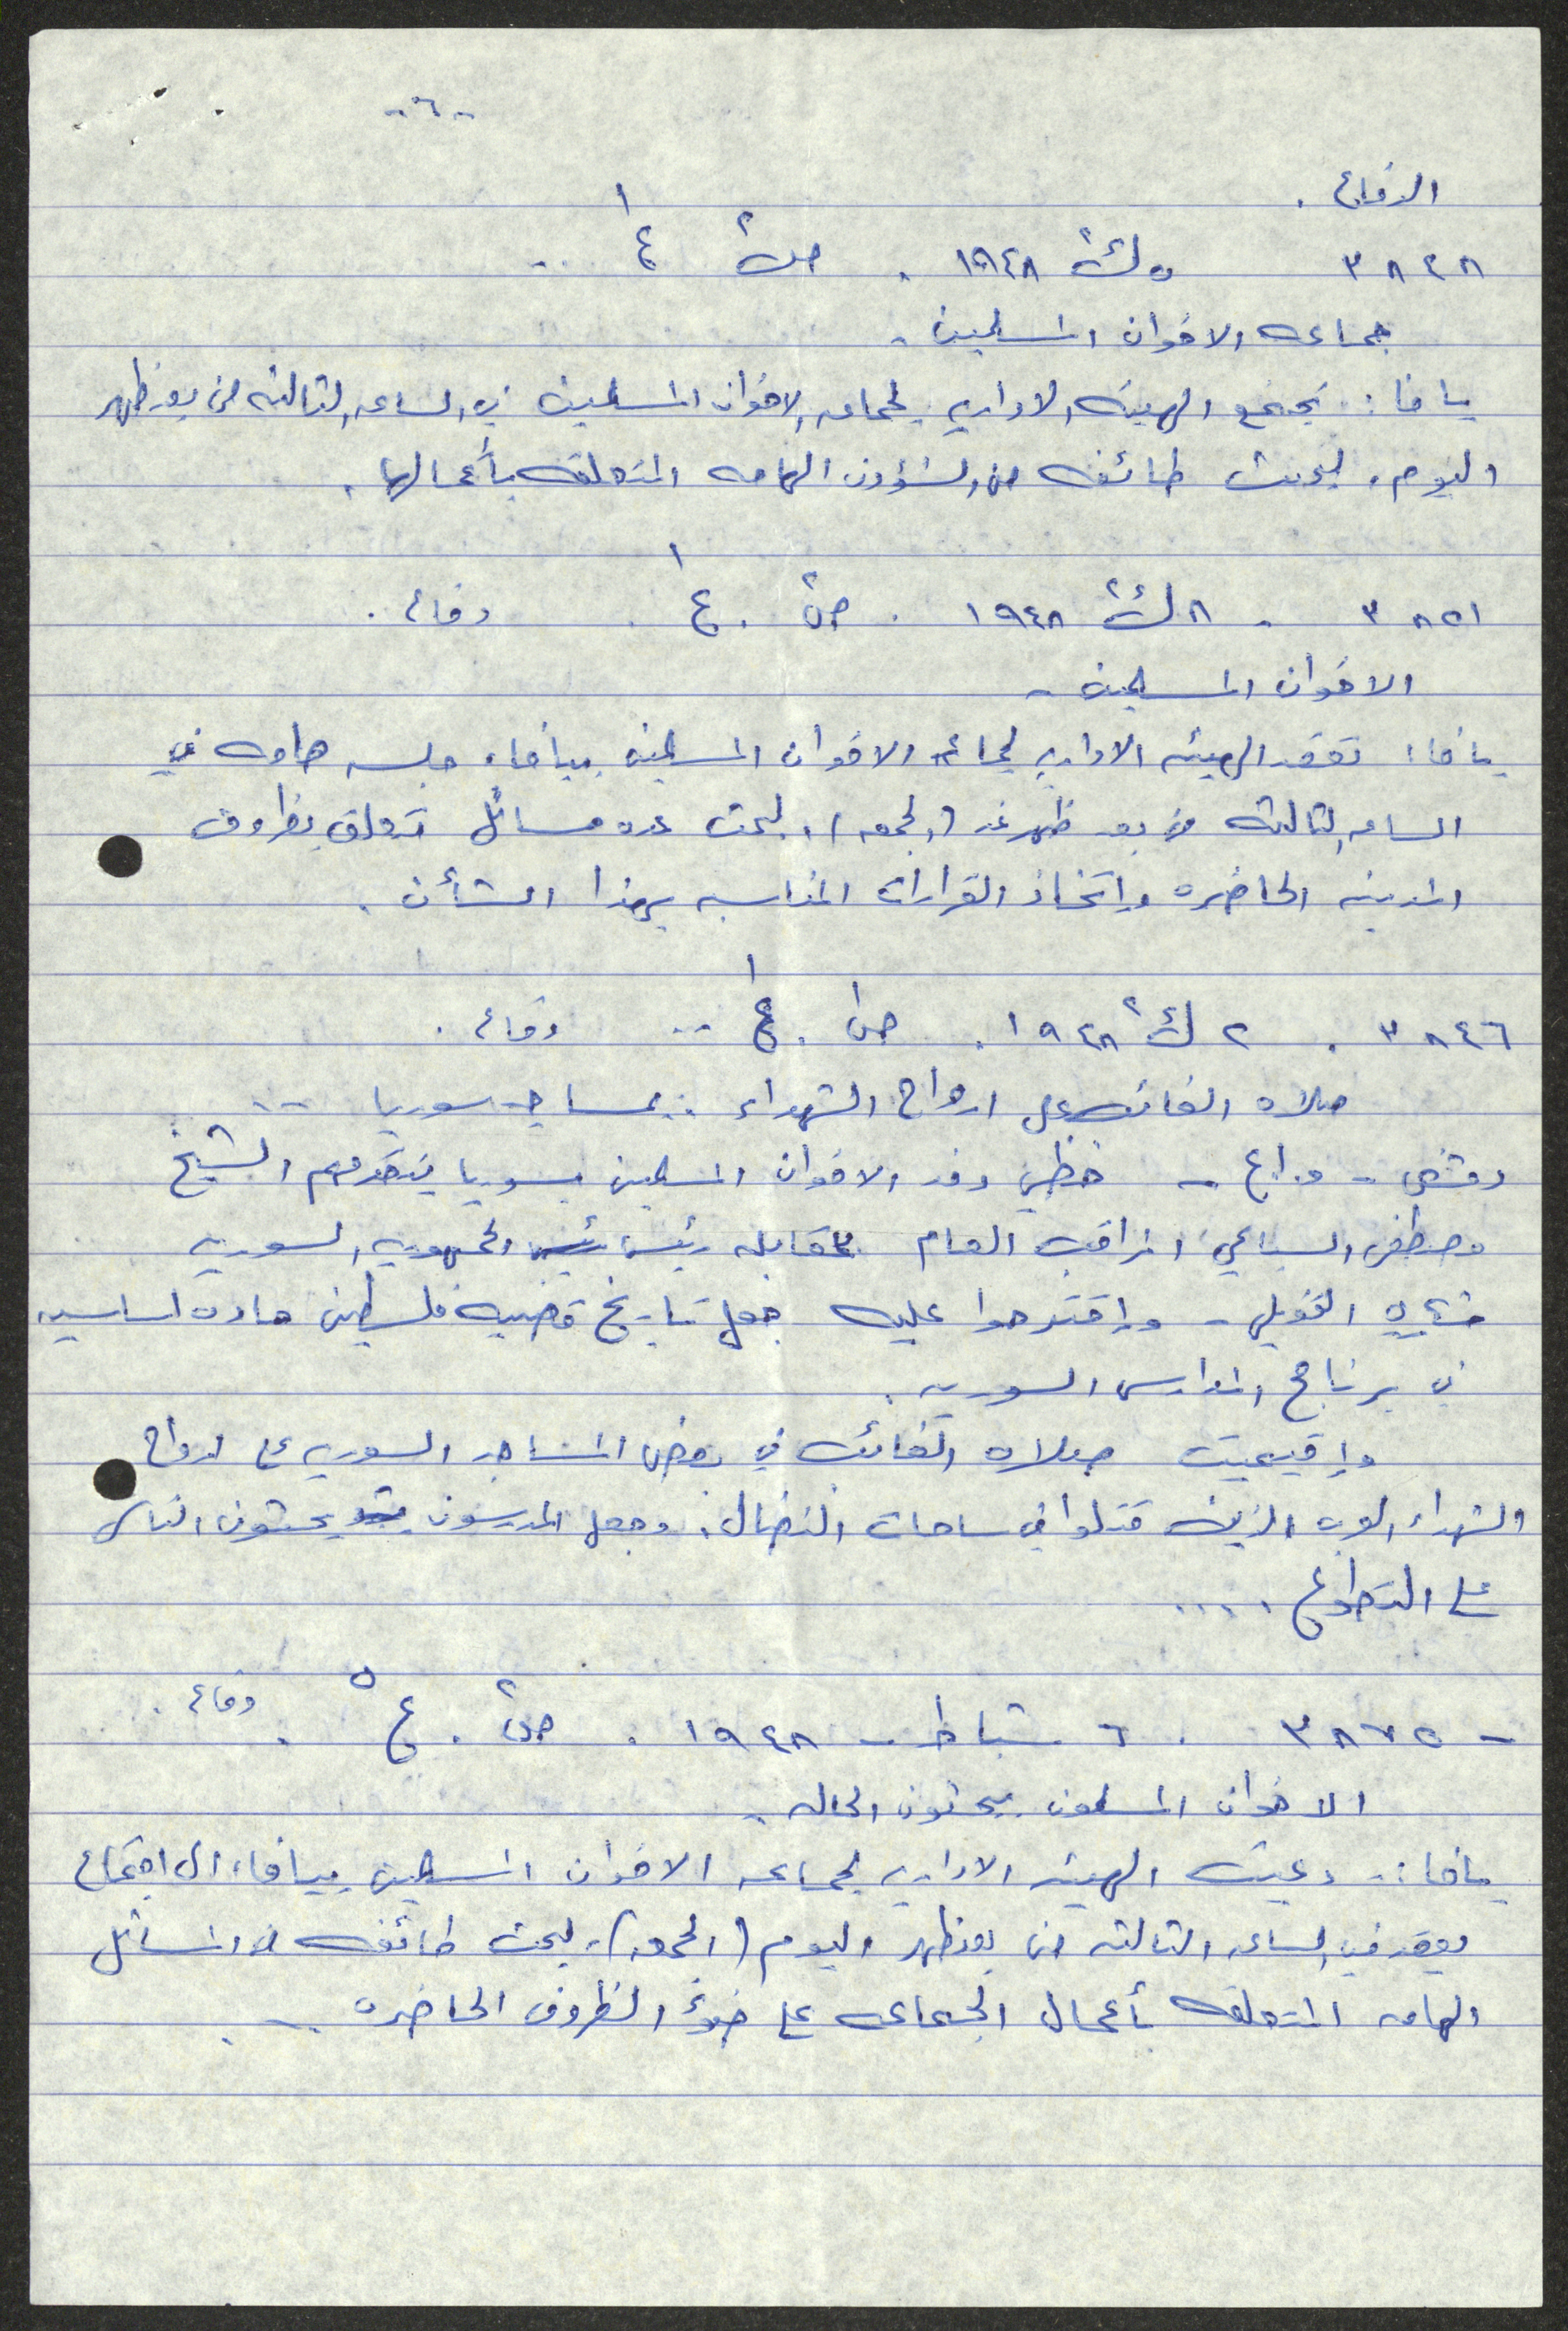 -٦-
الدفاع .
٣٨٤٨ ٥ ك٢ ١٩٤٨ . ص٢ ع١ ..
جماعه الاخوان المسلمين .
يافا : تجتمع الهيئه الاداريه لجماعه الاخوان المسلمين في الساعه الثالثه من بعد ظهر
اليوم ، لبحث طائفه من الشؤون الهامه المتعلقه بأعمالها .
٣٨٥١ - ٨ ك٢ ١٩٤٨ . ص٢ . ع١ . دفاع .
الاخوان المسلمين -
يافا : تعقد الهيئه الاداريه لجماعه الاخوان المسلمين بيافا ، جلسه هامه في
الساعه الثالثه من بعد ظهر غد (الجمعه) ، لبحث عده مسائل تتعلق بظروف
المدينه الحاضره وإتخاذ القرارات المناسبه بهذا الشأن .
٣٨٤٦ . ٢ ك٢ ١٩٤٨ . ص١ . ع١ .. دفاع .
صلاه الغائب على ارواح الشهداء . بمساجد سوريا ..
دمشق - و.أ.ع - حظي وفد الاخوان المسلمين بسوريا يتقدمهم الشيخ
مصطفى السباعي المراقب العام بمقابله رئيس الجمهوريه السوريه
شكري القوتلي - وإقترحوا عليه جعل تاريخ قضيه فلسطين ماده اساسيه
في برنامج المدارس السوريه .
وإقيمت صلاه الغائب في بعض المساجد السوريه على ارواح
الشهداء العرب الذين قتلوا في ساحات النضال ، وجعل المدرسون يحثون الناس
على التطوع ....
- ٣٨٧٥ . ٦ شباط - ١٩٤٨ . ص٢ . ع٥ . دفاع .
الاخوان المسلمون يبحثون الحاله .
يافا :- دعيت الهيئه الاداريه لجماعه الاخوان المسلمين بيافا ، الى اجتماع
يعقد في الساعه الثالثه من بعد ظهر اليوم (الجمعه) ، لبحث طائفه من المسائل
الهامه المتعلقه بأعمال الجماعه على ضوء الظروف الحاضره ..